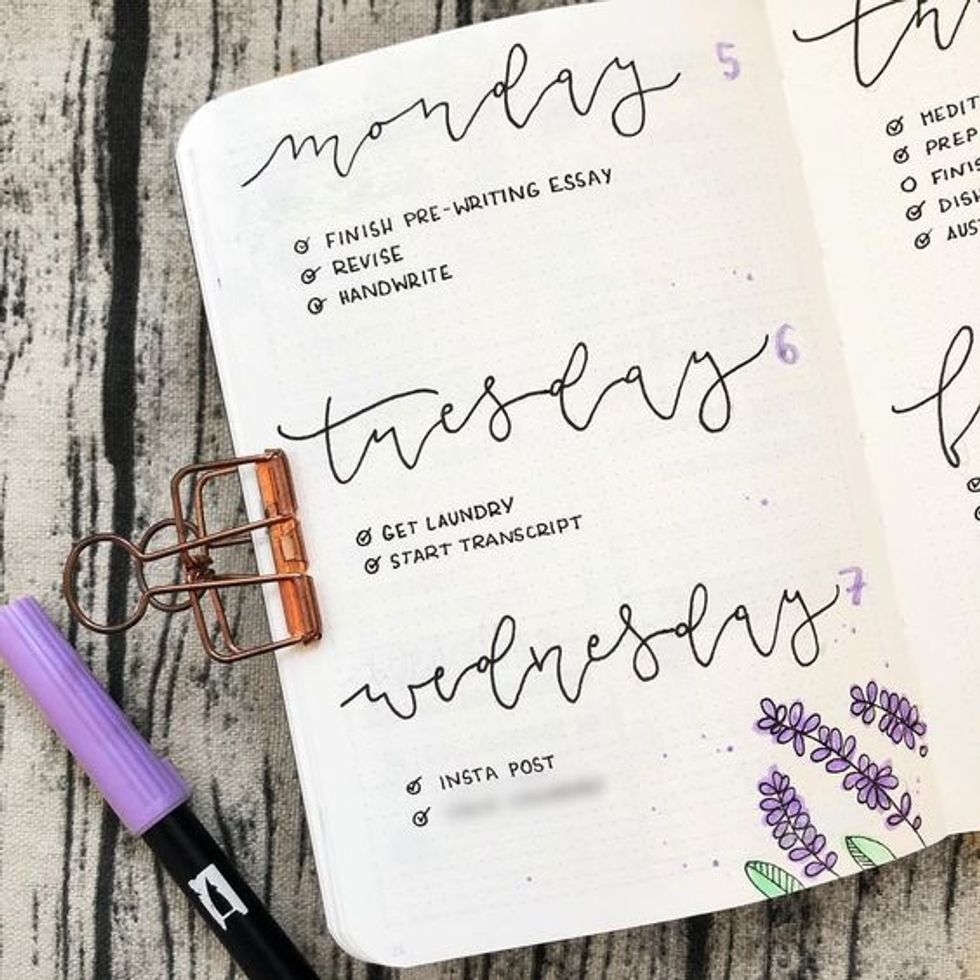 monday 5
FINISH PRE-WRITING ESSAY
REVISE
HANDWRITE
tuesday 6
GET LAUNDRY
START TRANSCRIPT
wednesday 7
INSTA POST
th
MEDIT
PREP
FINIS
DISH
AUS